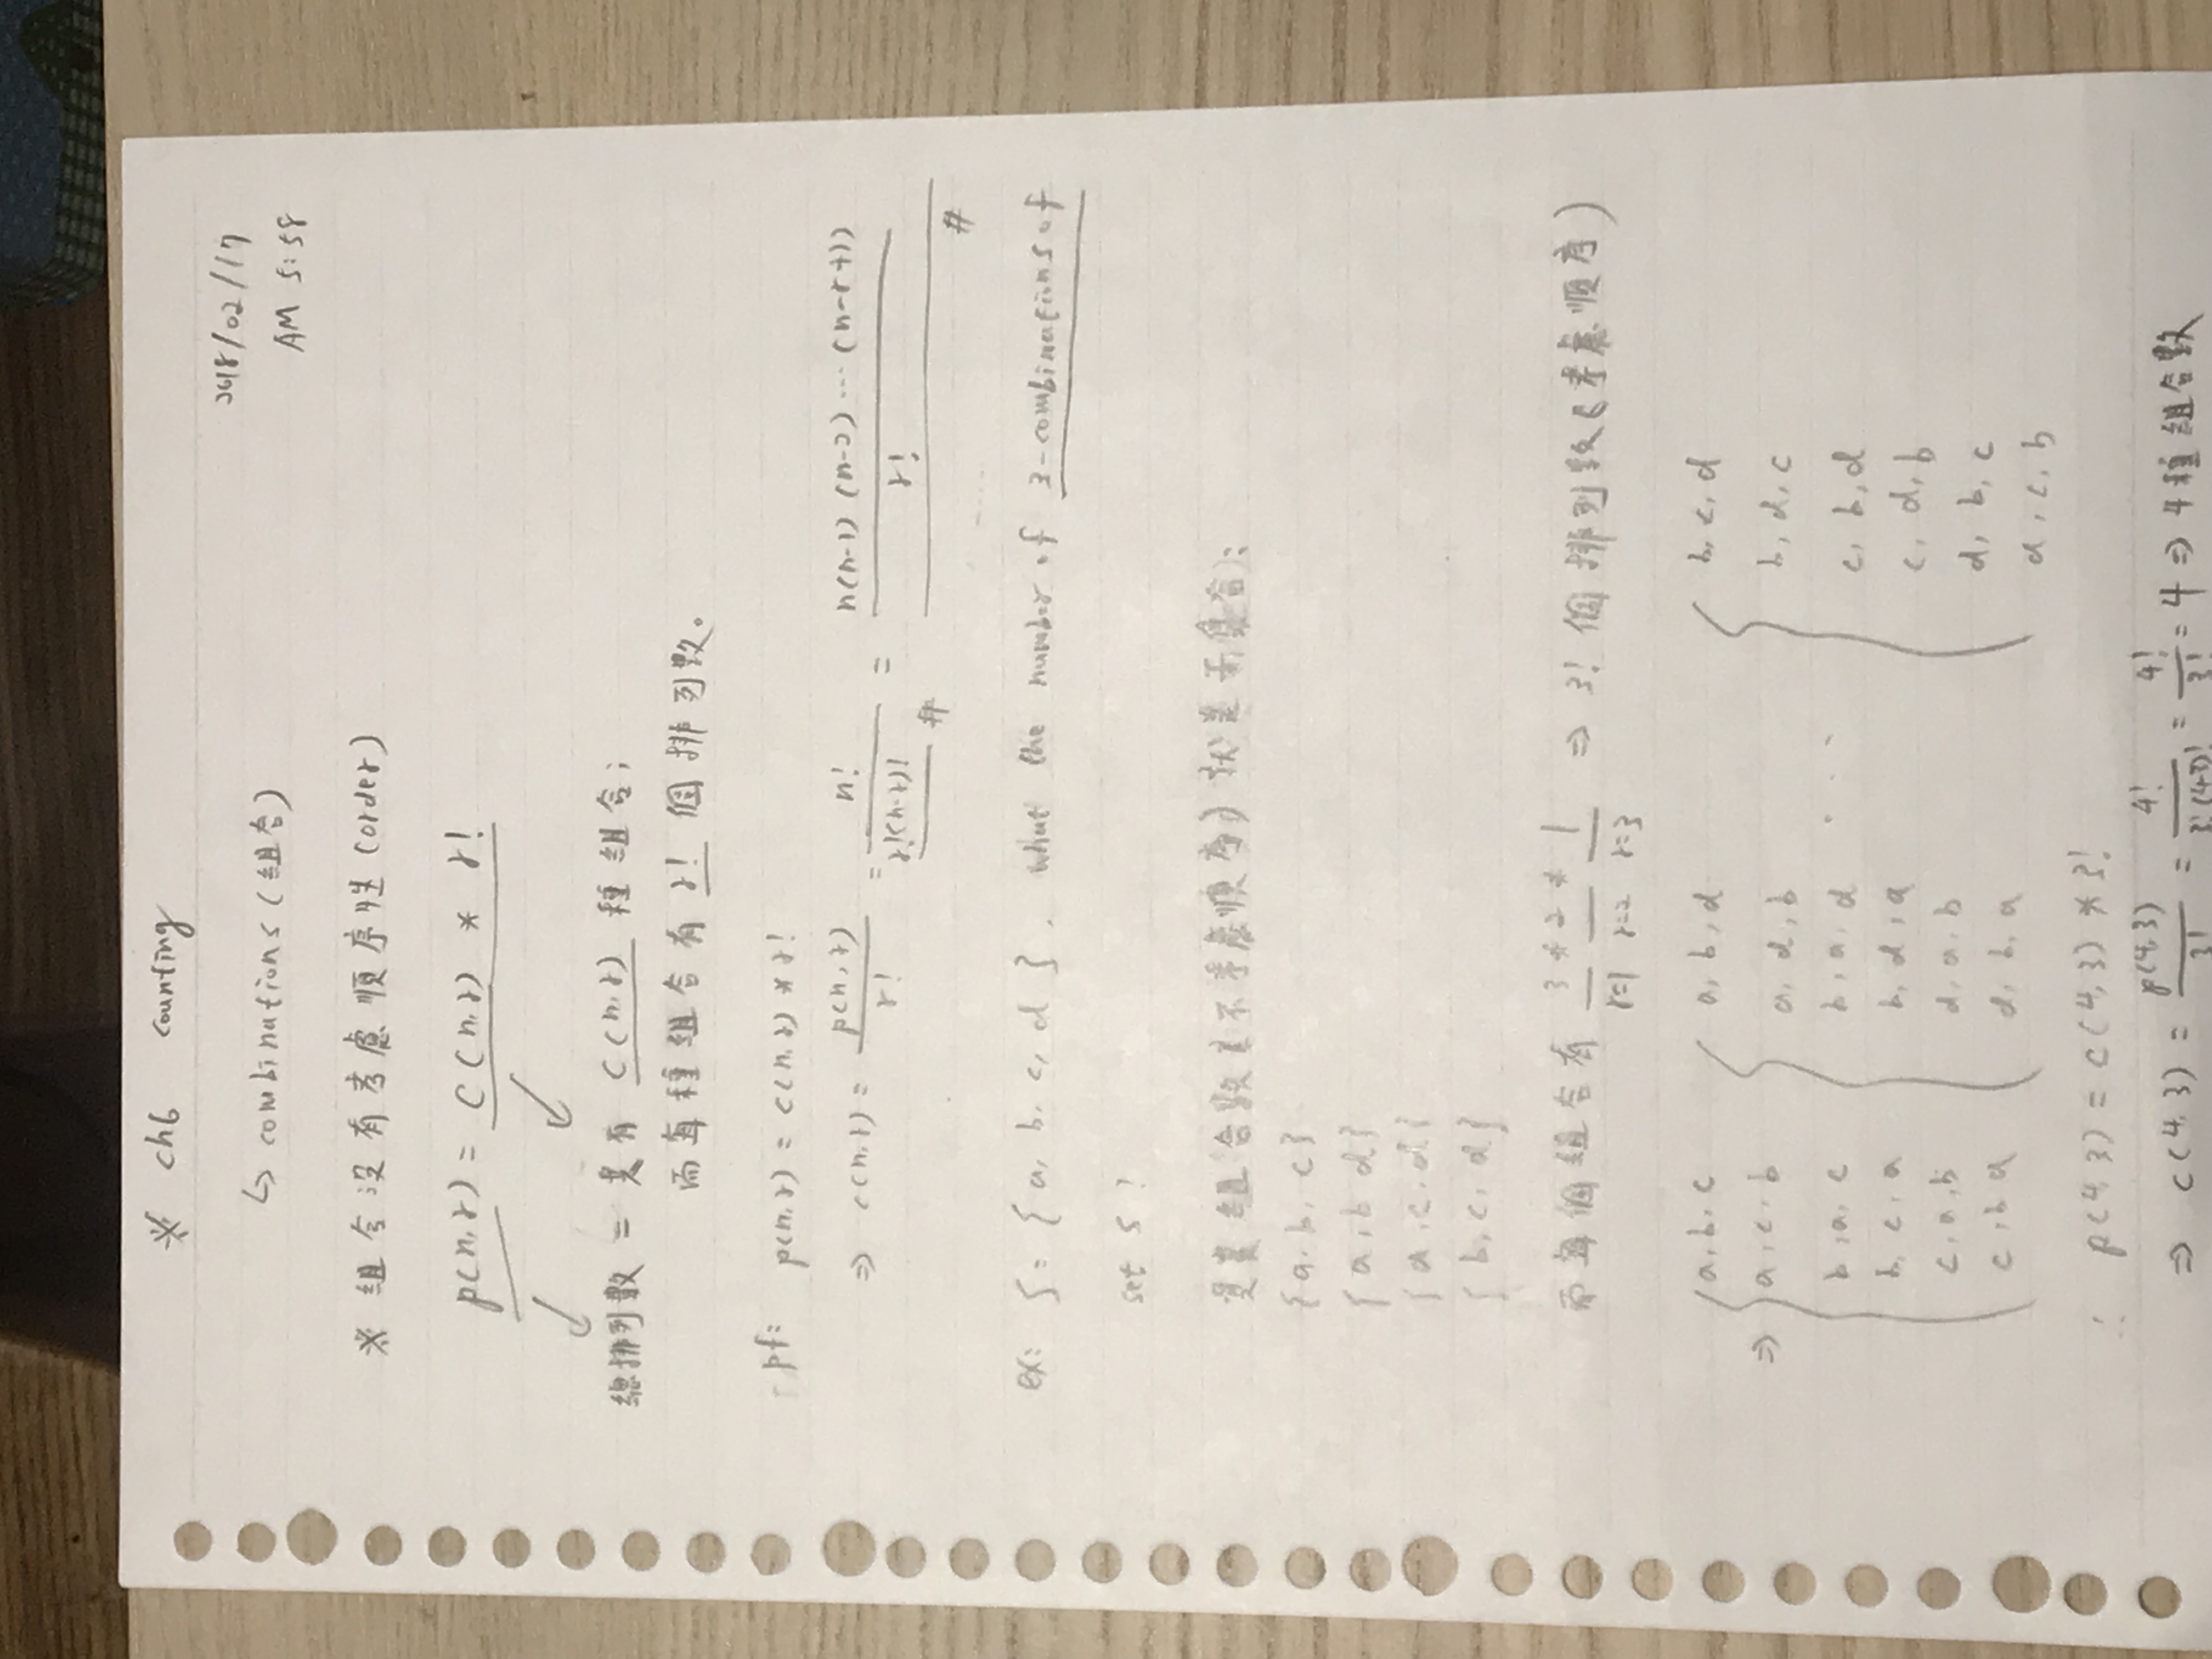 ※ ch6 counting
2018/02/17
↳ combinations (組合)
AM 5:58
※ 組合没有考慮順序性 (order)
p(n,r) = C(n,r) * r!
總排列數 = 共有 C(n,r) 種組合;
而每種組合有 r! 個排列數。
pf: p(n,r) = c(n,r) * r!
⇒ c(n,r) = p(n,r) / r! = n! / r!(n-r)! # = n(n-1)(n-2)···(n-r+1) / r! #
ex: S = { a, b, c, d }, what the number of 3-combinations of
set S ?
組合數(不考慮順序)就是子集合:
{a, b, c}
{a, b d}
{a, c, d}
{b, c, d}
而每個組合有 3 * 2 * 1 ⇒ 3! 個排列數(考慮順序)
r=1 r=2 r=3
⇒ { a, b, c { a, b, d { b, c, d
a, c, b a, d, b b, d, c
b, a, c b, a, d ··· c, b, d
b, c, a b, d, a c, d, b
c, a, b d, a, b d, b, c
c, b a d, b, a d, c, b
∴ p(4,3) = c(4,3) * 3!
⇒ c(4,3) = p(4,3) / 3! = 4! / 3!(4-3)! = 4! / 3! = 4 ⇒ 4種組合數